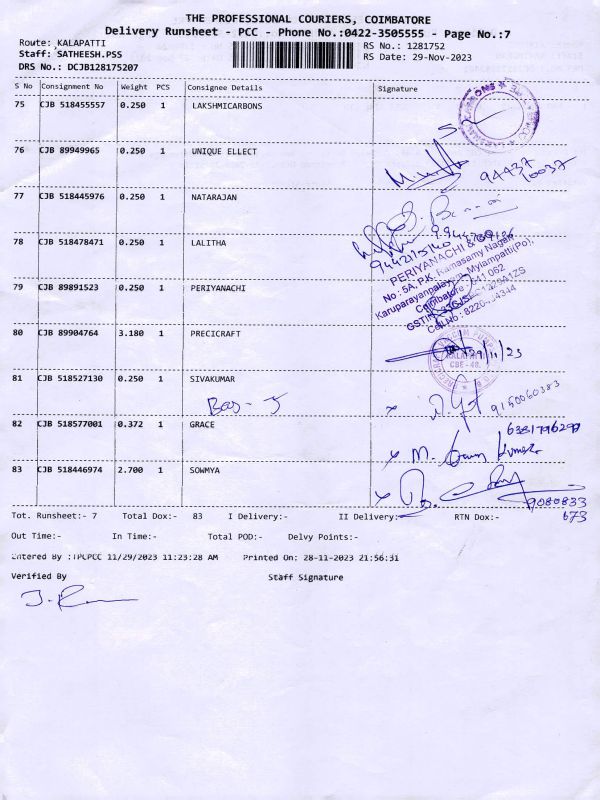 THE PROFESSIONAL COURIERS, COIMBATORE
Delivery Runsheet - PCC - Phone No.:0422-3505555 - Page No.:7
Route: KALAPATTI
RS No.: 1281752
Staff: SATHEESH.PSS
RS Date: 29-Nov-2023
DRS No.: DCJB128175207
S No Consignment No Weight PCS Consignee Details Signature
75 CJB 518455557 0.250 1 LAKSHMICARBONS
76 CJB 89949965 0.250 1 UNIQUE ELLECT
94437
10037
77 CJB 518445976 0.250 1 NATARAJAN
78 CJB 518478471 0.250 1 LALITHA
9442175140
PERIYANACHI &
No : 5A, P.K. Ramasamy Nagar,
Karuparayanpalayam, Mylampatti(Po),
Coimbatore - 641 062
79 CJB 89891523 0.250 1 PERIYANACHI
80 CJB 89904764 3.180 1 PRECICRAFT
29/11/23
81 CJB 518527130 0.250 1 SIVAKUMAR
9150060383
82 CJB 518577001 0.372 1 GRACE
6381796297
83 CJB 518446974 2.700 1 SOWMYA
9080833
673
Tot. Runsheet:- 7 Total Dox:- 83 I Delivery:- II Delivery:- RTN Dox:-
Out Time:- In Time:- Total POD:- Delvy Points:-
Entered By :IPCPCC 11/29/2023 11:23:28 AM Printed On: 28-11-2023 21:56:31
Verified By Staff Signature